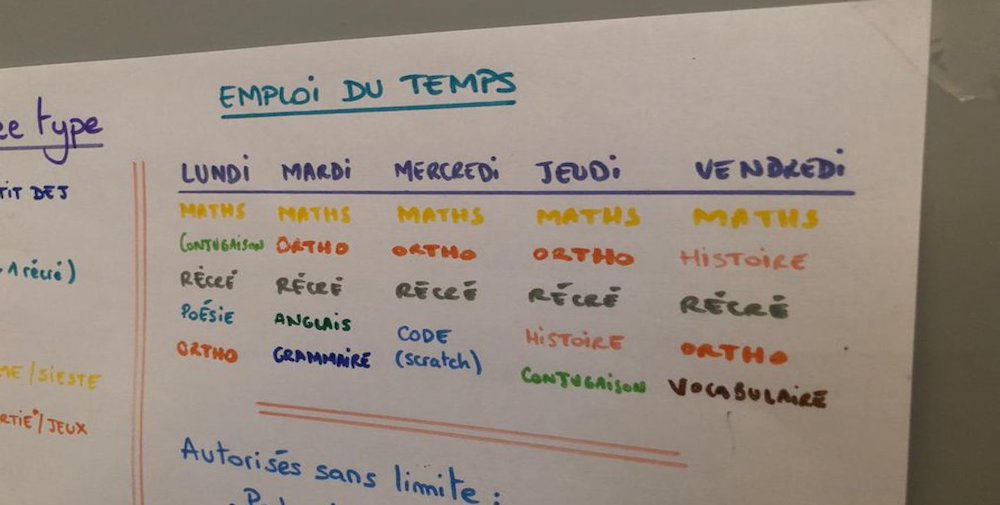 EMPLOI DU TEMPS
type
LUNDI MARDI MERCREDI JEUDI VENDREDI
DEJ
MATHS MATHS MATHS MATHS MATHS
CONJUGAISON ORTHO ORTHO ORTHO HISTOIRE
1 récré)
RÉCRÉ RÉCRÉ RÉCRÉ RÉCRÉ RÉCRÉ
POÉSIE ANGLAIS CODE HISTOIRE ORTHO
ORTHO GRAMMAIRE (scratch) CONJUGAISON VOCABULAIRE
/SIESTE
/JEUX
Autorisés sans limite :